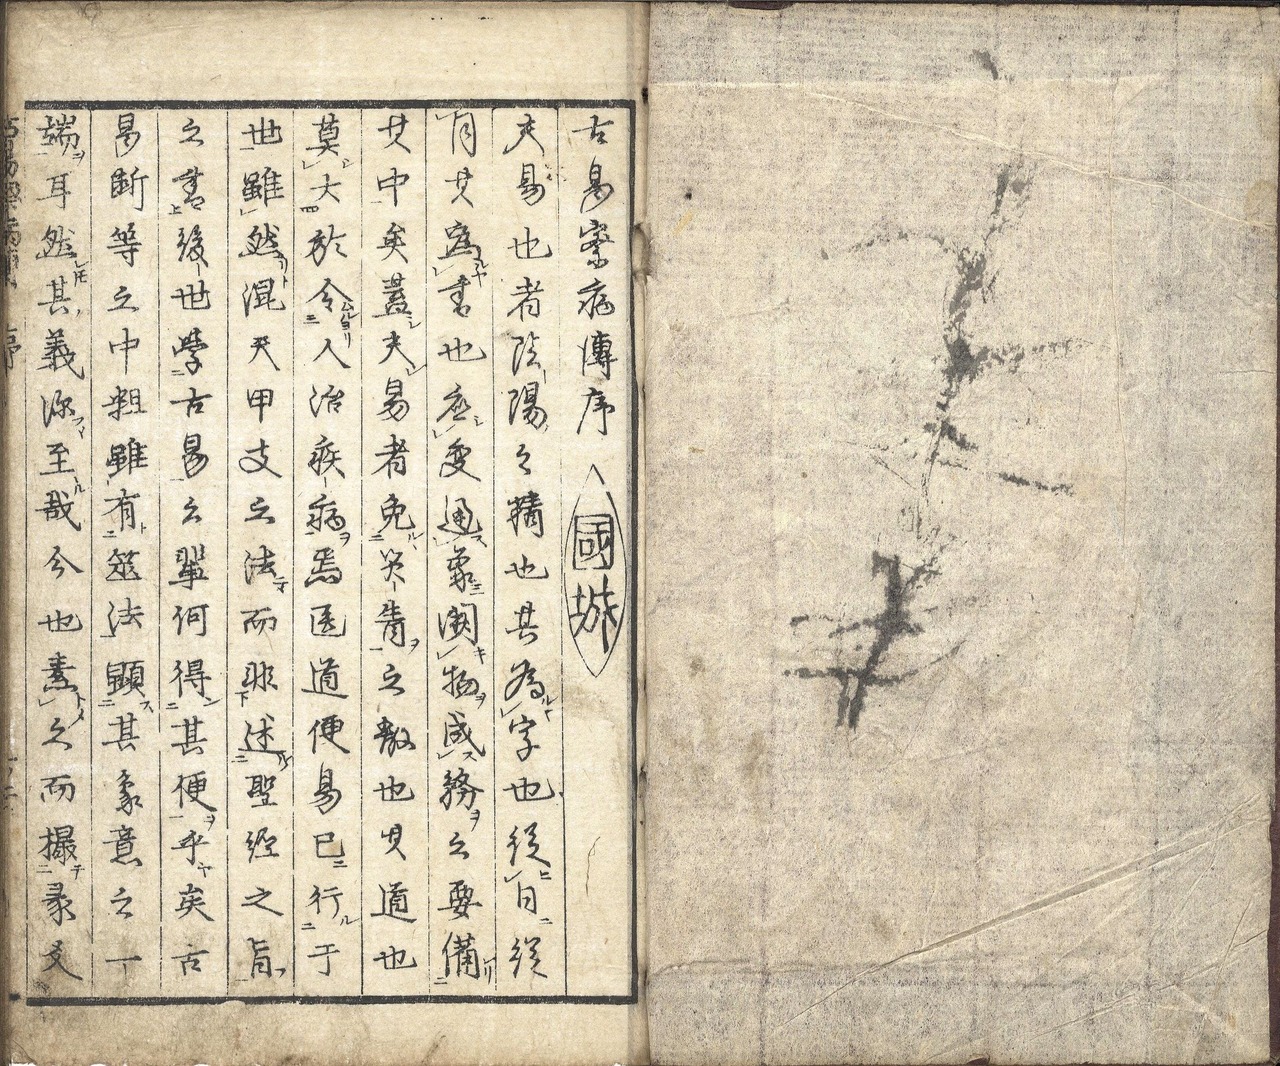 古易察病傳序 國城
夫易也者陰陽之精也其為字也從日從
月其為書也應變通象開物成務之要備
其中矣蓋夫易者免災眚之教也其道也
莫大於令人治疾病焉医道便易已行于
世雖然混天甲支之法而非述聖經之旨
之書後世學古易之輩何得其便乎矣古
易斷等之中粗雖有筮法顕其象意之一
端耳然其義深至哉今也素之而撮彖爻